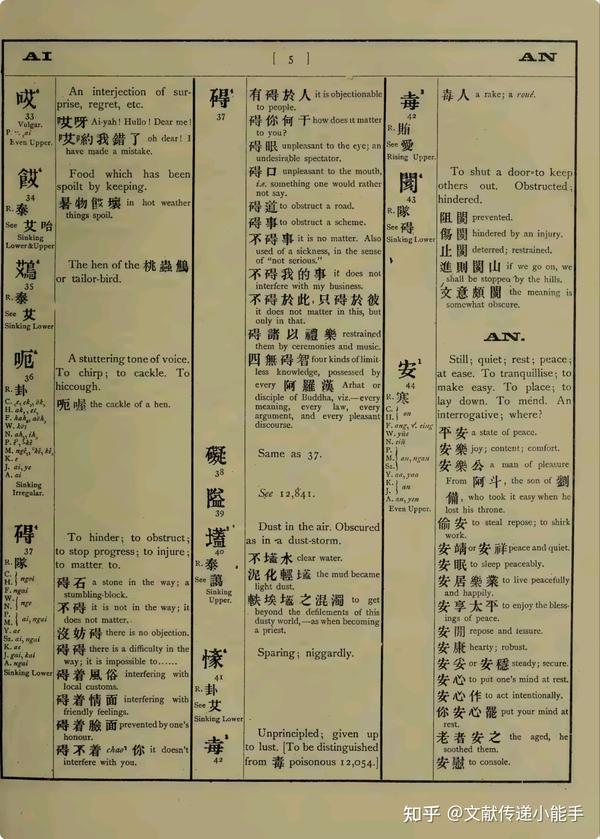 AI
[ 5 ]
AN
哎⁴
33
Vulgar.
Even Upper.
An interjection of sur-
prise, regret, etc.
哎呀 Ai-yah! Hullo! Dear me!
哎喲我錯了 oh dear! I
have made a mistake.
34
R. 泰
See 艾
Sinking
Lower & Upper
Food which has been
spoilt by keeping.
in hot weather
things spoil.
35
R. 泰
See 艾
Sinking Lower
The hen of the 桃蟲鷦
or tailor-bird.
呃⁴
36
R. 卦
K. e
J. ai, ye
A. ai
Sinking
Irregular.
A stuttering tone of voice.
To chirp; to cackle. To
hiccough.
呃喔 the cackle of a hen.
碍⁴
37
R. 隊
C.
H. ngoi
F. ngai
W.
N. nge
P.
M. ai, ngai
Y. ae
Sz. ai, ngai
K. ae
J. gai, kai
A. ngai
Sinking Lower
To hinder; to obstruct;
to stop progress; to injure;
to matter to.
碍石 a stone in the way; a
stumbling-block.
不碍 it is not in the way; it
does not matter.
沒妨碍 there is no objection.
碍碍 there is a difficulty in the
way; it is impossible to......
碍着風俗 interfering with
local customs.
碍着情面 interfering with
friendly feelings.
碍着臉面 prevented by one's
honour.
碍不着 chao² 你 it doesn't
interfere with you.
碍⁴
37
有碍於人 it is objectionable
to people.
碍你何干 how does it matter
to you?
碍眼 unpleasant to the eye; an
undesirable spectator.
碍口 unpleasant to the mouth,
i.e. something one would rather
not say.
碍道 to obstruct a road.
碍事 to obstruct a scheme.
不碍事 it is no matter. Also
used of a sickness, in the sense
of "not serious."
不碍我的事 it does not
interfere with my business.
不碍於此,只碍於彼
it does not matter in this, but
only in that.
碍諸以禮樂 restrained
them by ceremonies and music.
四無碍智 four kinds of limit-
less knowledge, possessed by
every 阿羅漢 Arhat or
disciple of Buddha, viz.—every
meaning, every law, every
argument, and every pleasant
discourse.
礙⁴
38
Same as 37.
39
See 12,841.
壒⁴
40
R. 泰
See 藹
Sinking
Upper.
Dust in the air. Obscured
as in a dust-storm.
不壒水 clear water.
泥化輕壒 the mud became
light dust.
軼埃壒之混濁 to get
beyond the defilements of this
dusty world,—as when becoming
a priest.
41
R. 卦
See 艾
Sinking Lower
Sparing; niggardly.
毐³
42
Unprincipled; given up
to lust. [To be distinguished
from 毒 poisonous 12,054.]
毐³
42
R. 賄
See 愛
Rising Upper.
毐人 a rake; a roué.
閡⁴
43
R. 隊
See 碍
Sinking
Lower.
To shut a door to keep
others out. Obstructed;
hindered.
阻閡 prevented.
傷閡 hindered by an injury.
止閡 deterred; restrained.
進則閡山 if we go on, we
shall be stopped by the hills.
文意頗閡 the meaning is
somewhat obscure.
AN.
安¹
44
R. 寒
C.
H. on
W. yüe
P.
M. an, ngan
Sz.
K.
J. an
A. an, yen
Even Upper.
Still; quiet; rest; peace;
at ease. To tranquillise; to
make easy. To place; to
lay down. To mend. An
interrogative; where?
平安 a state of peace.
安樂 joy; content; comfort.
安樂公 a man of pleasure
From 阿斗, the son of 劉
備, who took it easy when he
lost his throne.
偷安 to steal repose; to shirk
work.
安靖 or 安祥 peace and quiet.
安眠 to sleep peaceably.
安居樂業 to live peacefully
and happily.
安享太平 to enjoy the bless-
ings of peace.
安閒 repose and leisure.
安康 hearty; robust.
安妥 or 安穩 steady; secure.
安心 to put one's mind at rest.
安心作 to act intentionally.
你安心罷 put your mind at
rest.
老者安之 the aged, he
soothed them.
安慰 to console.
知乎 @文献传递小能手